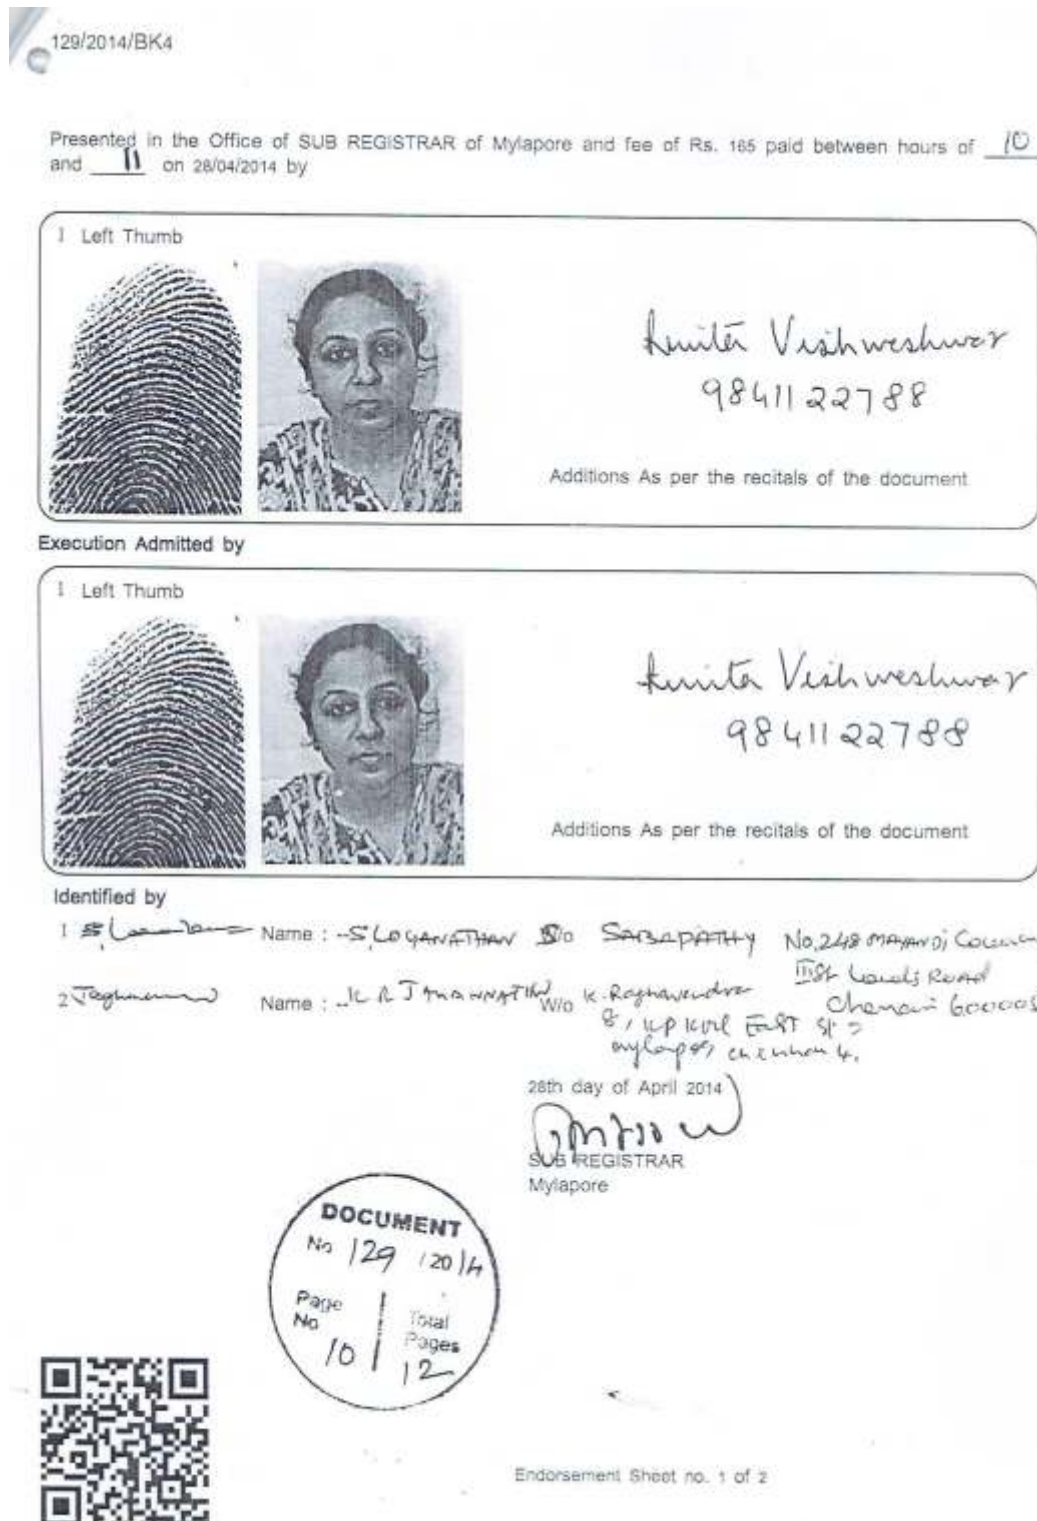 129/2014/BK4
Presented in the Office of SUB REGISTRAR of Mylapore and fee of Rs. 165 paid between hours of 10
and 11 on 28/04/2014 by
1 Left Thumb
Vishweshwar
9841122788
Additions As per the recitals of the document
Execution Admitted by
1 Left Thumb
Vishweshwar
9841122788
Additions As per the recitals of the document
Identified by
1 Name : S. LOGANATHAN S/o SABAPATHY No, 248
Road
2 Name : K R W/o K. Raghavendra Chennai
8, EAST
28th day of April 2014
SUB REGISTRAR
Mylapore
DOCUMENT
No 129 / 2014
Page No 10
Total Pages 12
Endorsement Sheet no. 1 of 2